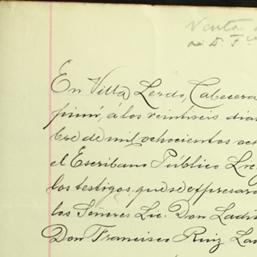 Venta
En Villa Lerdo, Cabecera
pimí, á los veintiseis dias
bre de mil ochocientos och
el Escribano Público Lic
los testigos que se expresara
los Señores Lic. Don Ladis
Don Francisco Ruiz La